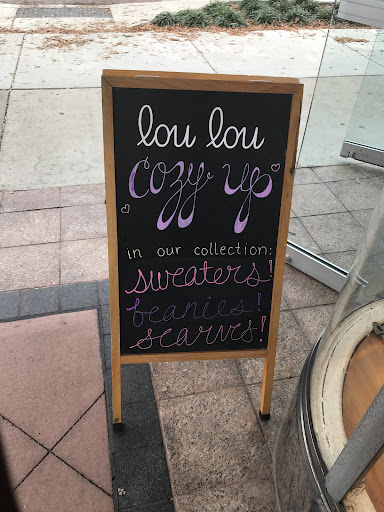 lou lou
cozy up
in our collection:
sweaters!
beanies!
scarves!